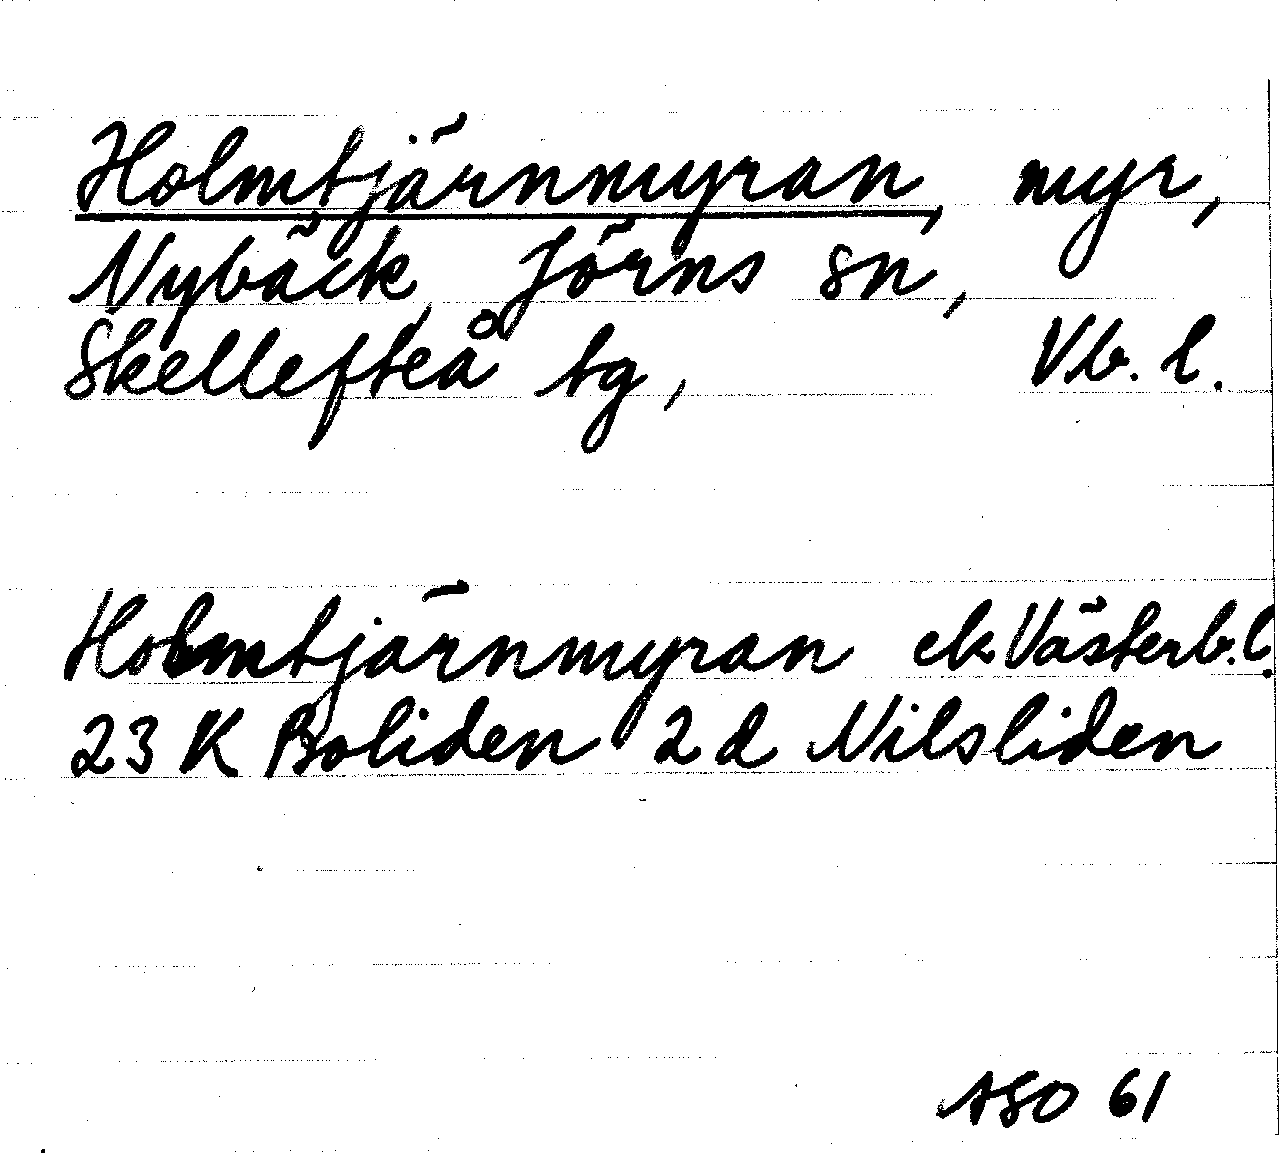 Holmtjärnmyran, myr,
Nybäck, Jörns sn,
Skellefteå tg, Vb. l.
Holmtjärnmyran ek. Västerb. l.
23 K Boliden 2 d Nilsliden
ASO 61